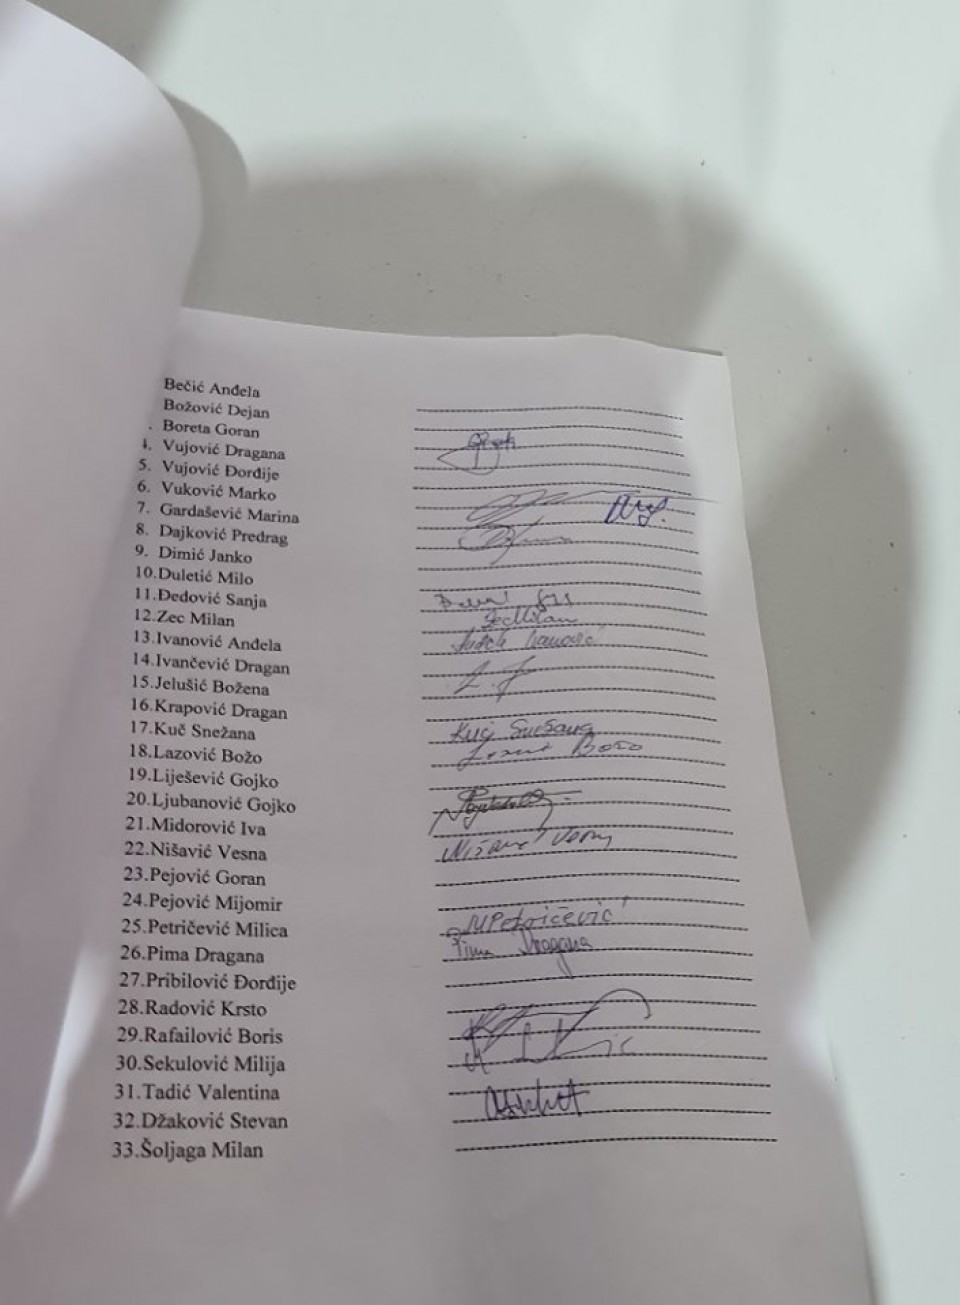 Bečić Anđela
Božović Dejan
. Boreta Goran
4. Vujović Dragana
5. Vujović Đorđije
6. Vuković Marko
7. Gardašević Marina
8. Dajković Predrag
9. Dimić Janko
10.Duletić Milo
11.Đedović Sanja
12.Zec Milan Zec Milan
13.Ivanović Anđela Anđela Ivanović
14.Ivančević Dragan
15.Jelušić Božena
16.Krapović Dragan
17.Kuč Snežana Kuč Snežana
18.Lazović Božo Božo
19.Liješević Gojko
20.Ljubanović Gojko
21.Midorović Iva
22.Nišavić Vesna Nišavić Vesna
23.Pejović Goran
24.Pejović Mijomir
25.Petričević Milica MPetričević
26.Pima Dragana Pima Dragana
27.Pribilović Đorđije
28.Radović Krsto
29.Rafailović Boris
30.Sekulović Milija
31.Tadić Valentina
32.Džaković Stevan
33.Šoljaga Milan